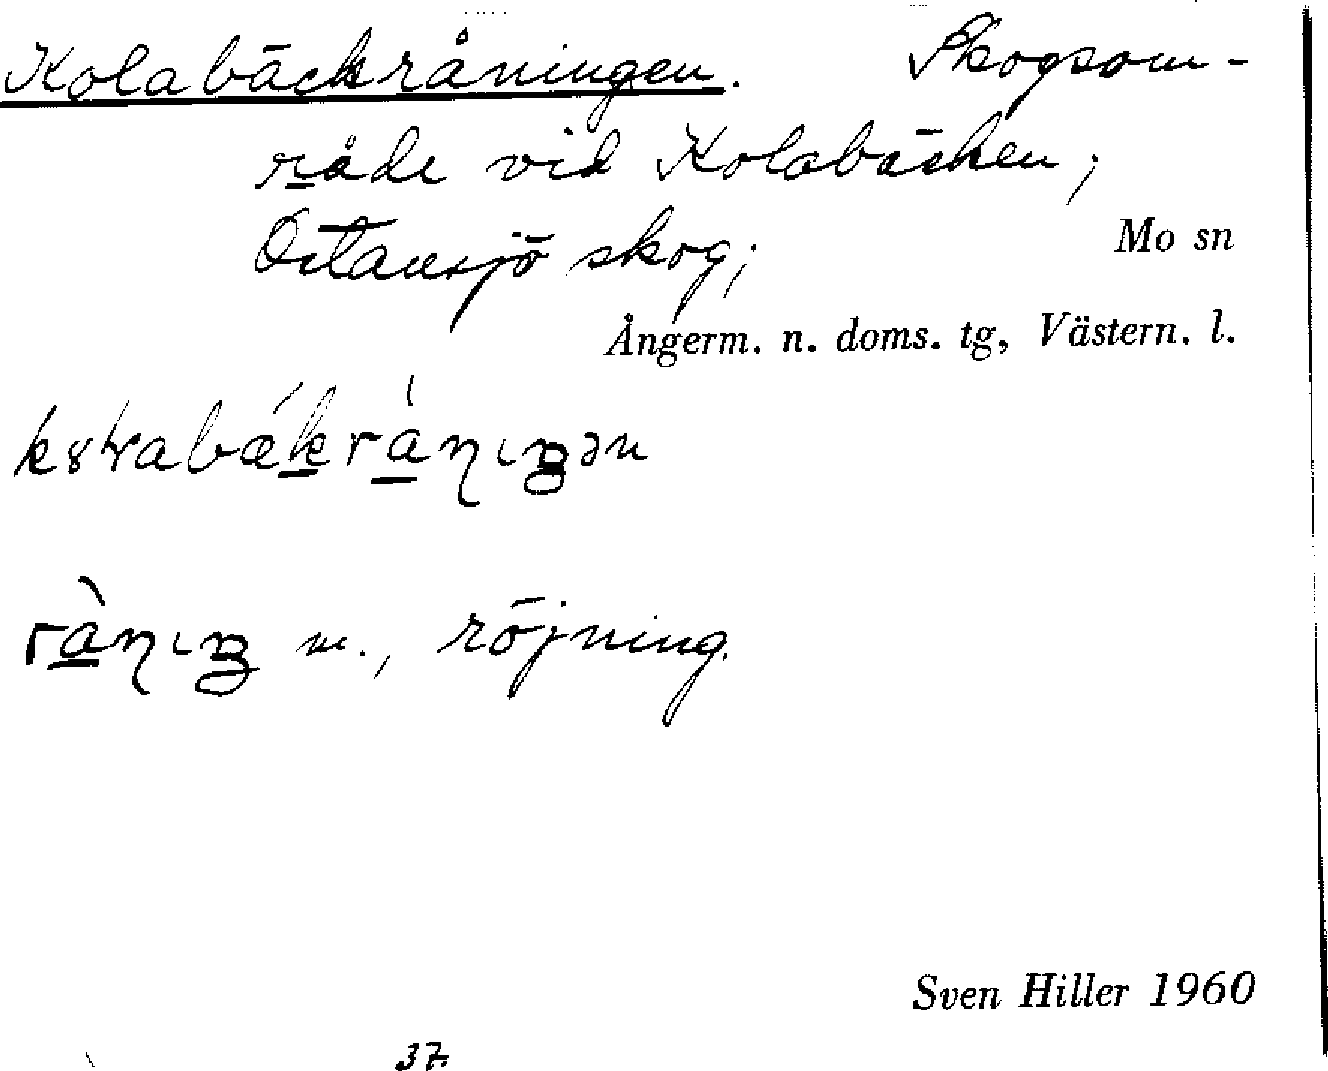 Kolabäckråningen. Skogsom-
råde vid Kolabäcken,
Östansjö skog;
Mo sn
Ångerm. n. doms. tg, Västern. l.
m., röjning.
Sven Hiller 1960
37